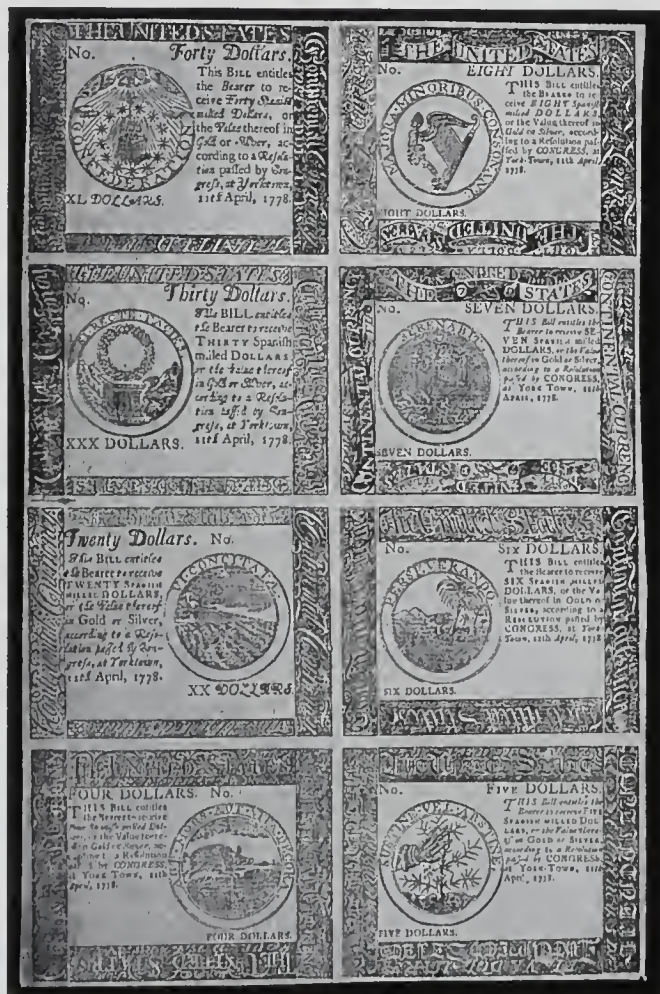 THE UNITED STATES
No. Forty Dollars.
This BILL entitles
the Bearer to re-
ceive Forty Spanish
milled Dollars, or
the Value thereof in
Gold or Silver, ac-
cording to a Resolu-
tion passed by Con-
gress, at Yorktown,
11th April, 1778.
CONFEDERATION
XL DOLLARS.
THE UNITED STATES
No. EIGHT DOLLARS.
THIS BILL entitles
the BEARER to re-
ceive EIGHT Spanish
milled DOLLARS,
or the Value thereof in
Gold or Silver, accord-
ing to a Resolution pas-
sed by CONGRESS, at
York-Town, 11th April,
1778.
MAJORA MINORIBUS CONSONANT
EIGHT DOLLARS.
THE UNITED STATES
No. Thirty Dollars.
This BILL entitles
the Bearer to receive
THIRTY Spanish
milled DOLLARS,
or the Value thereof
in Gold or Silver, ac-
cording to a Resolu-
tion passed by Con-
gress, at Yorktown,
11th April, 1778.
SI RECTE FACIES
XXX DOLLARS.
STATES
CONTINENTAL CURRENCY
No. SEVEN DOLLARS.
THIS Bill entitles the
Bearer to receive SE-
VEN SPANISH milled
DOLLARS, or the Value
thereof in Gold or Silver,
according to a Resolution
passed by CONGRESS,
at YORK TOWN, 11th
APRIL, 1778.
SERENABIT
SEVEN DOLLARS.
Twenty Dollars. No.
This BILL entitles
the Bearer to receive
TWENTY SPANISH
MILLED DOLLARS,
or the Value thereof
in Gold or Silver,
according to a Reso-
lution passed by Con-
gress, at Yorktown,
11th April, 1778.
VI CONCITATAE
XX DOLLARS.
The United States
No. SIX DOLLARS.
THIS BILL entitles
the Bearer to receive
SIX SPANISH MILLED
DOLLARS, or the Va-
lue thereof in GOLD or
SILVER, according to a
RESOLUTION passed by
CONGRESS, at York-
Town, 11th April, 1778.
PERSEVERANDO
SIX DOLLARS.
UNITED STATES
FOUR DOLLARS. No.
THIS BILL entitles
the Bearer to receive
milled Dol-
lars, or the Value there-
of in Gold or Silver, ac-
cording to a Resolution
passed by CONGRESS,
at YORK TOWN, 11th
April, 1778.
AUT MORS AUT VITA DECORA
FOUR DOLLARS.
No. FIVE DOLLARS.
THIS Bill entitles the
Bearer to receive FIVE
SPANISH MILLED DOL-
LARS, or the Value there-
of in GOLD or SILVER,
according to a Resolution
passed by CONGRESS,
at YORK-TOWN, 11th
April, 1778.
SUSTINE VEL ABSTINE
FIVE DOLLARS.